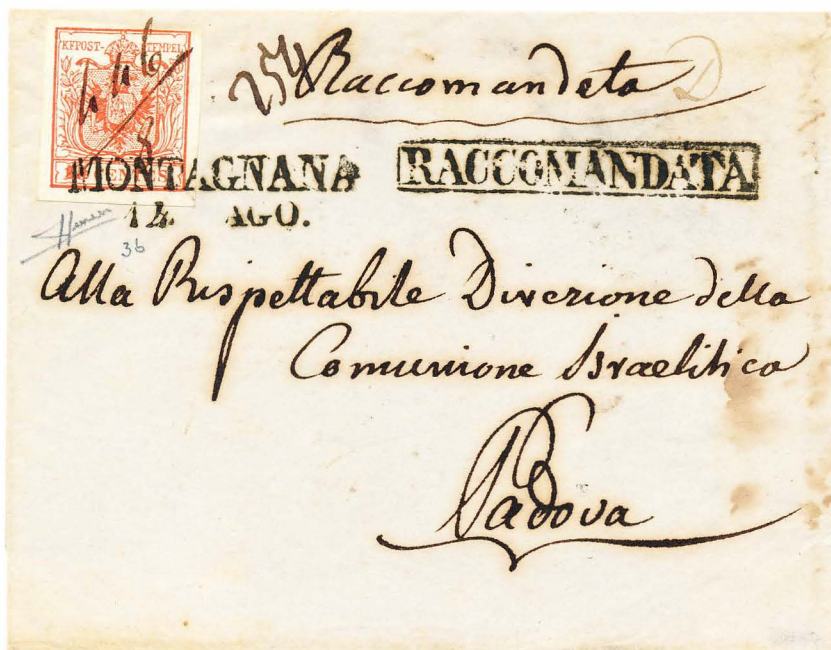 KFPOST- STEMPEL
446
8
254 Raccomandata D
MONTAGNANA RACCOMANDATA
14 AGO.
36
Alla Rispettabile Direzione della
Comunione Israelitica
Padova